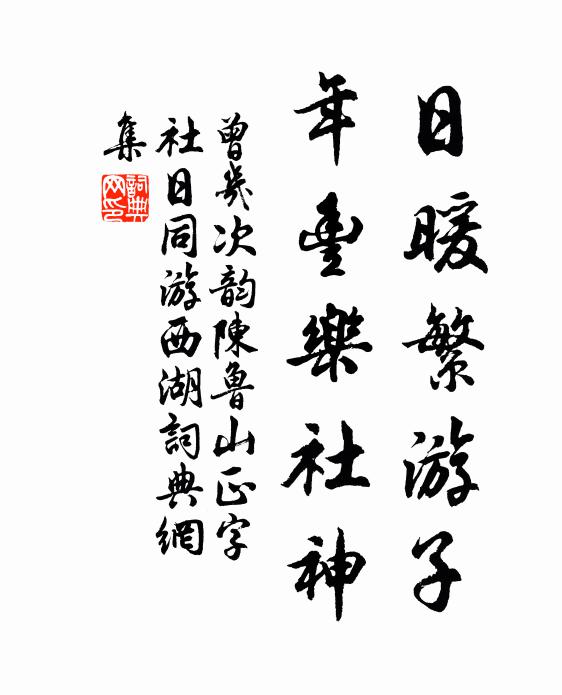 日暖繁游子
年豐樂社神
曾幾次韵陳魯山正字
社日同游西湖詞典網
集
詞典
网印